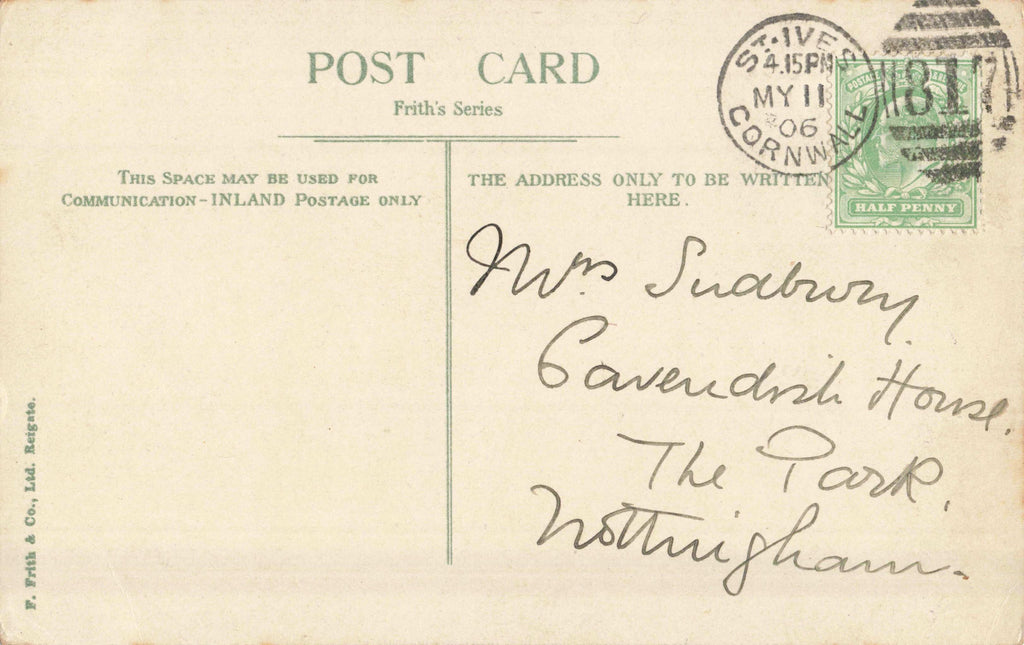 POST CARD
Frith's Series
THIS SPACE MAY BE USED FOR
COMMUNICATION-INLAND POSTAGE ONLY
THE ADDRESS ONLY TO BE WRITTEN
HERE.
ST. IVES
4.15PM
MY 11
06
CORNWALL
817
POSTAGE
HALF PENNY
Mrs Sudbury.
Cavendish House.
The Park.
Nottingham.
F. Frith & Co., Ltd. Reigate.